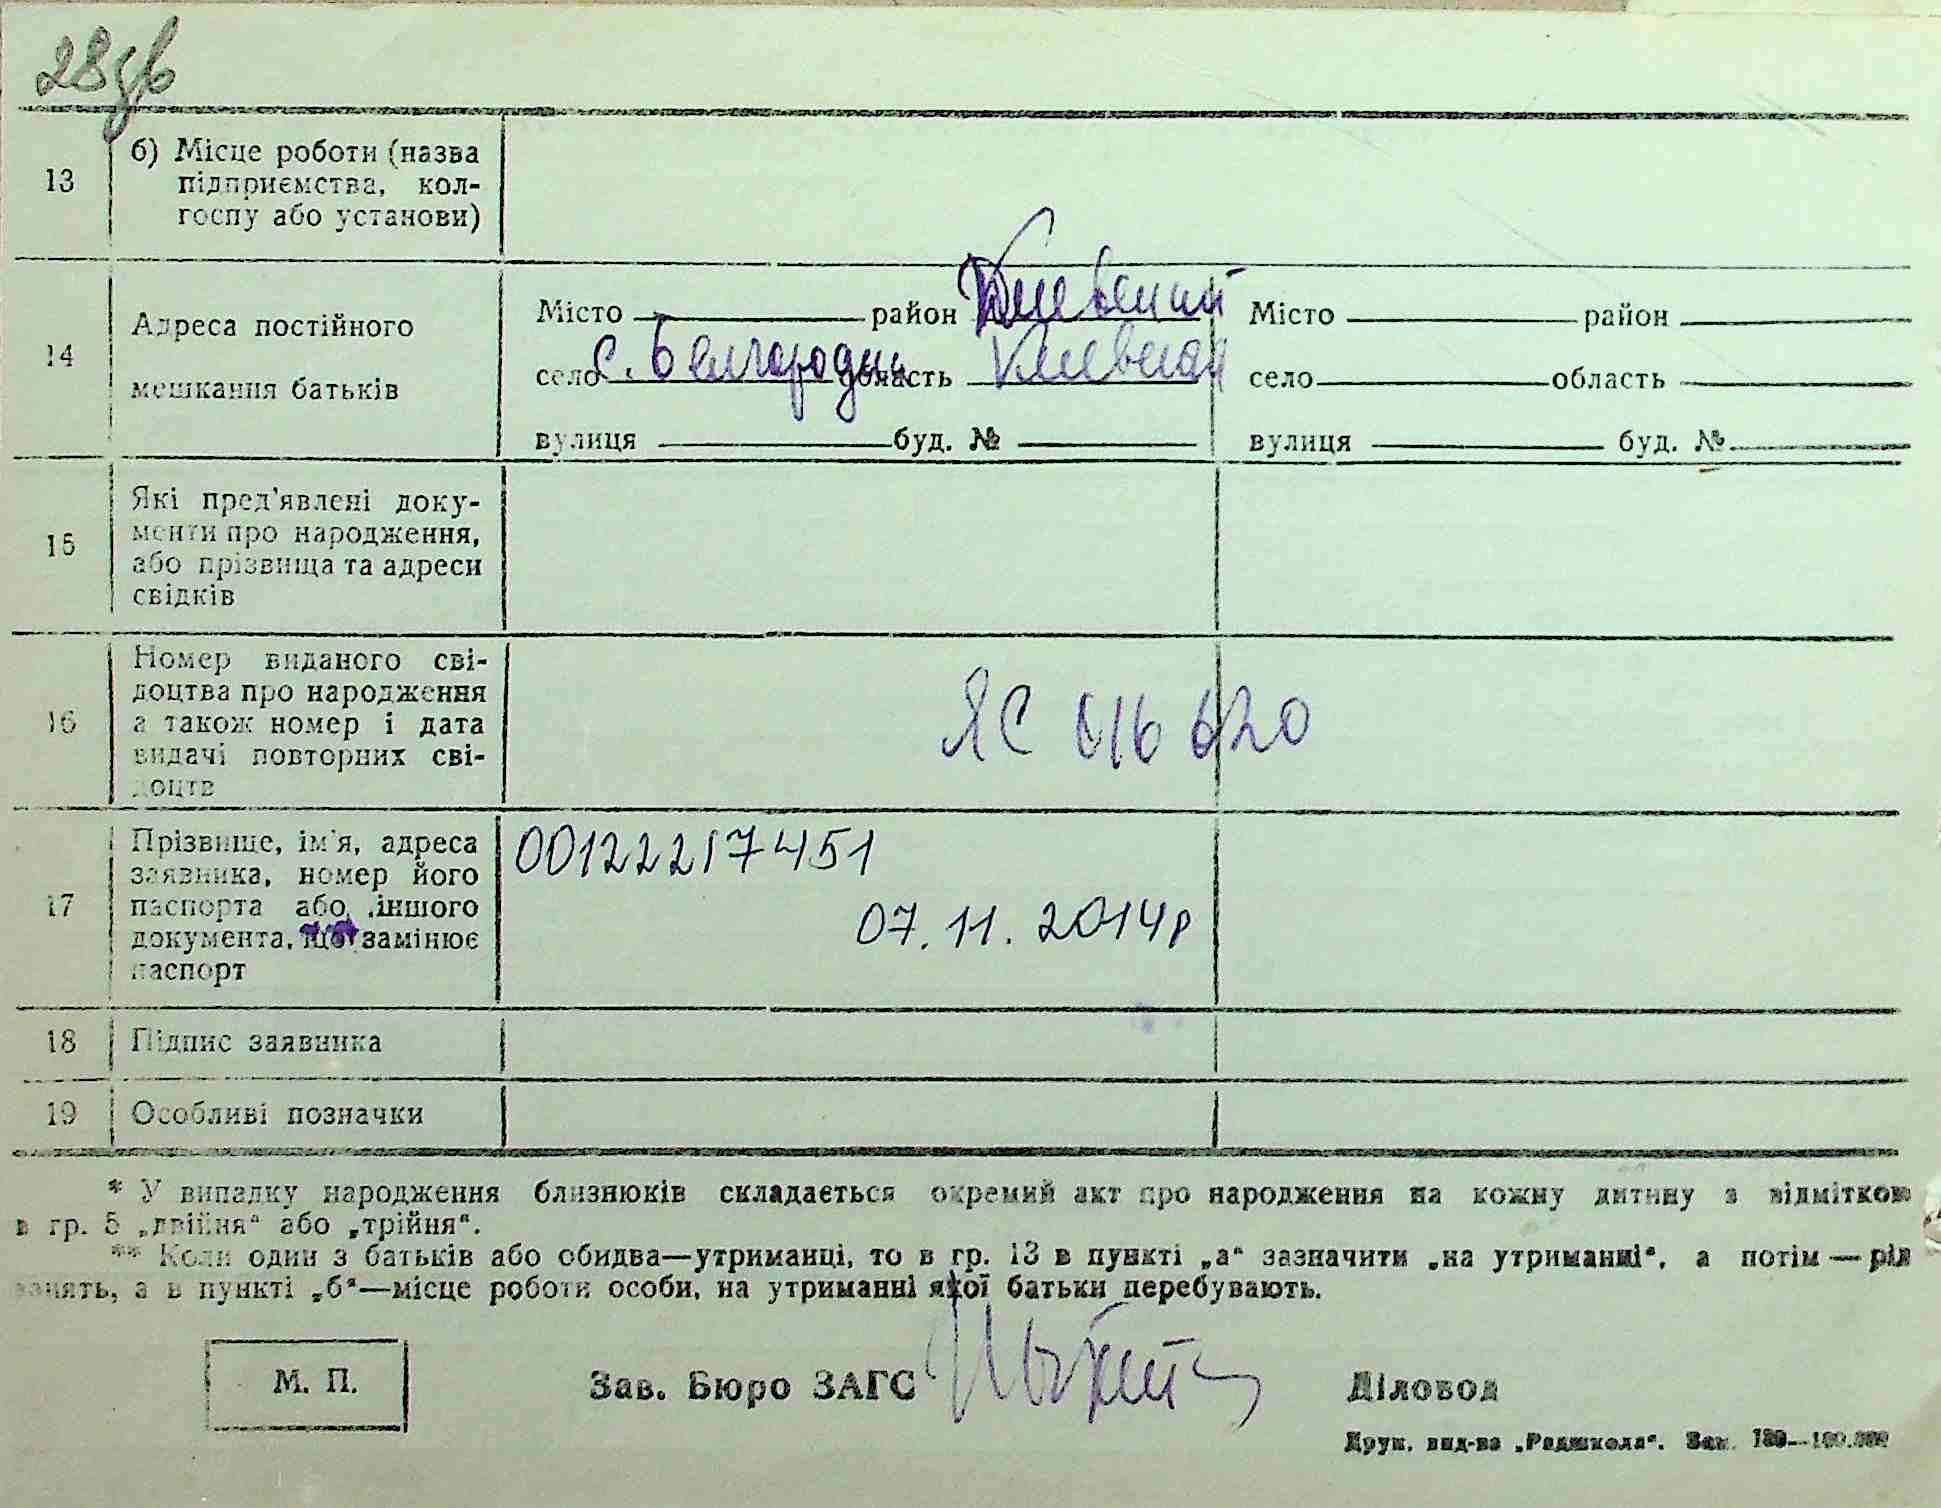 28зв
13
б) Місце роботи (назва
підприємства, кол-
госпу або установи)
14
Адреса постійного
мешкання батьків
Місто район Киевский
село с. Белгородка область Киевская
вулиця буд. №
Місто район
село область
вулиця буд. №
15
Які пред'явлені доку-
менти про народження,
або прізвища та адреси
свідків
16
Номер виданого сві-
доцтва про народження
а також номер і дата
видачі повторних сві-
доцтв
ЯС 016620
17
Прізвище, ім'я, адреса
заявника, номер його
паспорта або іншого
документа, що замінює
паспорт
00122217451
07.11.2014р
18
Підпис заявника
19
Особливі позначки
* У випадку народження близнюків складається окремий акт про народження на кожну дитину з відміткою
в гр. 5 „двійня“ або „трійня“.
** Коли один з батьків або обидва—утриманці, то в гр. 13 в пункті „а“ зазначити „на утриманні“, а потім—рід
занять, а в пункті „б“—місце роботи особи, на утриманні якої батьки перебувають.
М. П.
Зав. Бюро ЗАГС
Діловод
Друк. вид-ва „Радшкола“. Зам. 180—100.000